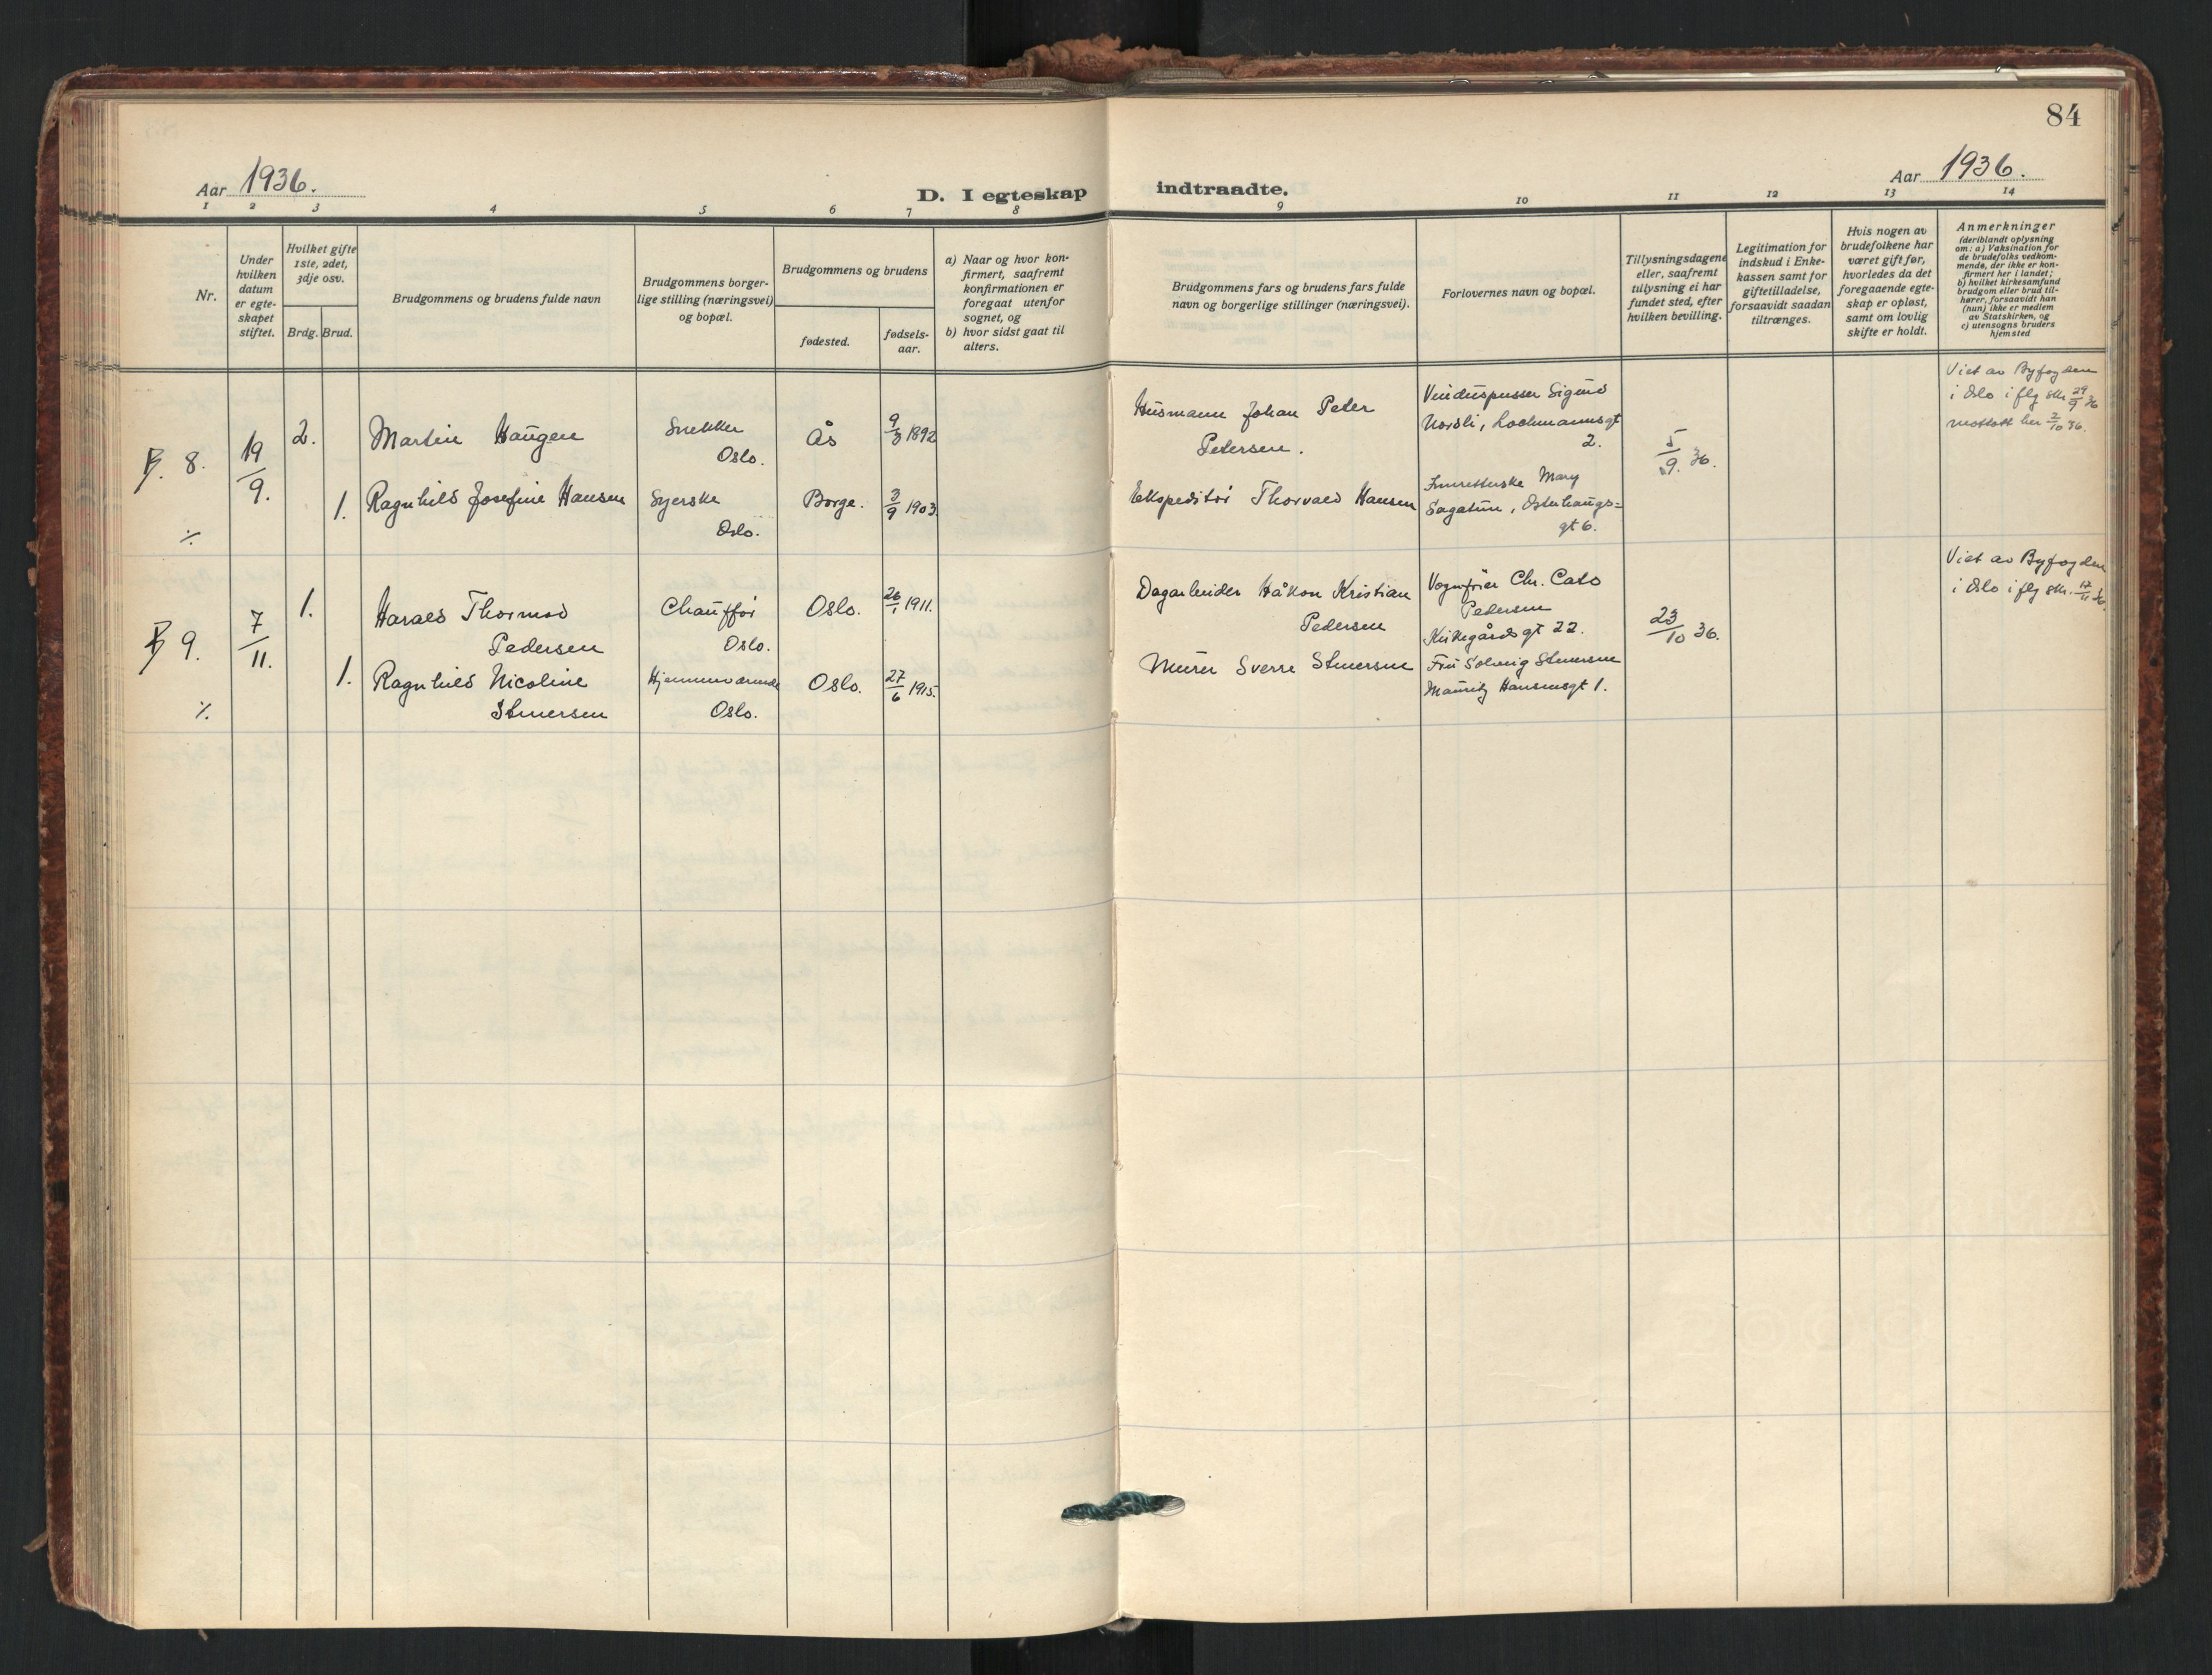 84
Aar 1936.
D. I egteskap indtraadte.
Aar 1936.
1 2 3 4 5 6 7 8 9 10 11 12 13 14
Nr.
Under
hvilken
datum
er egte-
skapet
stiftet.
Hvilket gifte
1ste, 2det,
3dje osv.
Brdg. Brud.
Brudgommens og brudens fulde navn
Brudgommens borger-
lige stilling (næringsvei)
og bopæl.
Brudgommens og brudens
fødested.
fødsels-
aar.
a) Naar og hvor kon-
firmert, saafremt
konfirmationen er
foregaat utenfor
sognet, og
b) hvor sidst gaat til
alters.
Brudgommens fars og brudens fars fulde
navn og borgerlige stillinger (næringsvei).
Forlovernes navn og bopæl.
Tillysningsdagene
eller, saafremt
tillysning ei har
fundet sted, efter
hvilken bevilling.
Legitimation for
indskud i Enke-
kassen samt for
giftetilladelse,
forsaavidt saadan
tiltrænges.
Hvis nogen av
brudefolkene har
været gift før,
hvorledes da det
foregaaende egte-
skap er opløst,
samt om lovlig
skifte er holdt.
Anmerkninger
(deriblandt oplysning
om: a) Vaksination for
de brudefolks vedkom-
mende, der ikke er kon-
firmert her i landet;
b) hvilket kirkesamfund
brudgom eller brud til-
hører, forsaavidt han
(hun) ikke er medlem
av Statskirken, og
c) utensogns bruders
hjemsted
8.
19/9.
2.
Martin Haugen
Snekker
Oslo.
Ås
9/3 1892
Husmann Johan Peter
Pedersen.
Vinduspusser Sigurd
Norsli, Lochmannsgt
2.
5/9. 36.
Viet av Byfogden
i Oslo iflg skr. 29/9 36
mottatt her 2/10 36.
1.
Ragnhild Josefine Hansen
Syerske
Oslo.
Borge.
3/9 1903
Ekspeditør Thorvald Hansen
Mary
Sagatun, Osterhaugs=
gt 6.
%
9.
7/11.
1.
Harald Thormod
Pedersen
Chauffør
Oslo.
Oslo.
26/1 1911.
Dagarbeider Håkon Kristian
Pedersen
Chr. Cato
Pedersen
Kirkegårdsgt 22.
23/10 36.
Viet av Byfogden
i Oslo iflg skr. 17/11 36.
1.
Ragnhild Nicoline
Stenersen
Hjemmeværende
Oslo.
Oslo.
27/6 1915.
Murer Sverre Stenersen
Fru Solveig Stenersen
Mauritz Hansensgt 1.
%